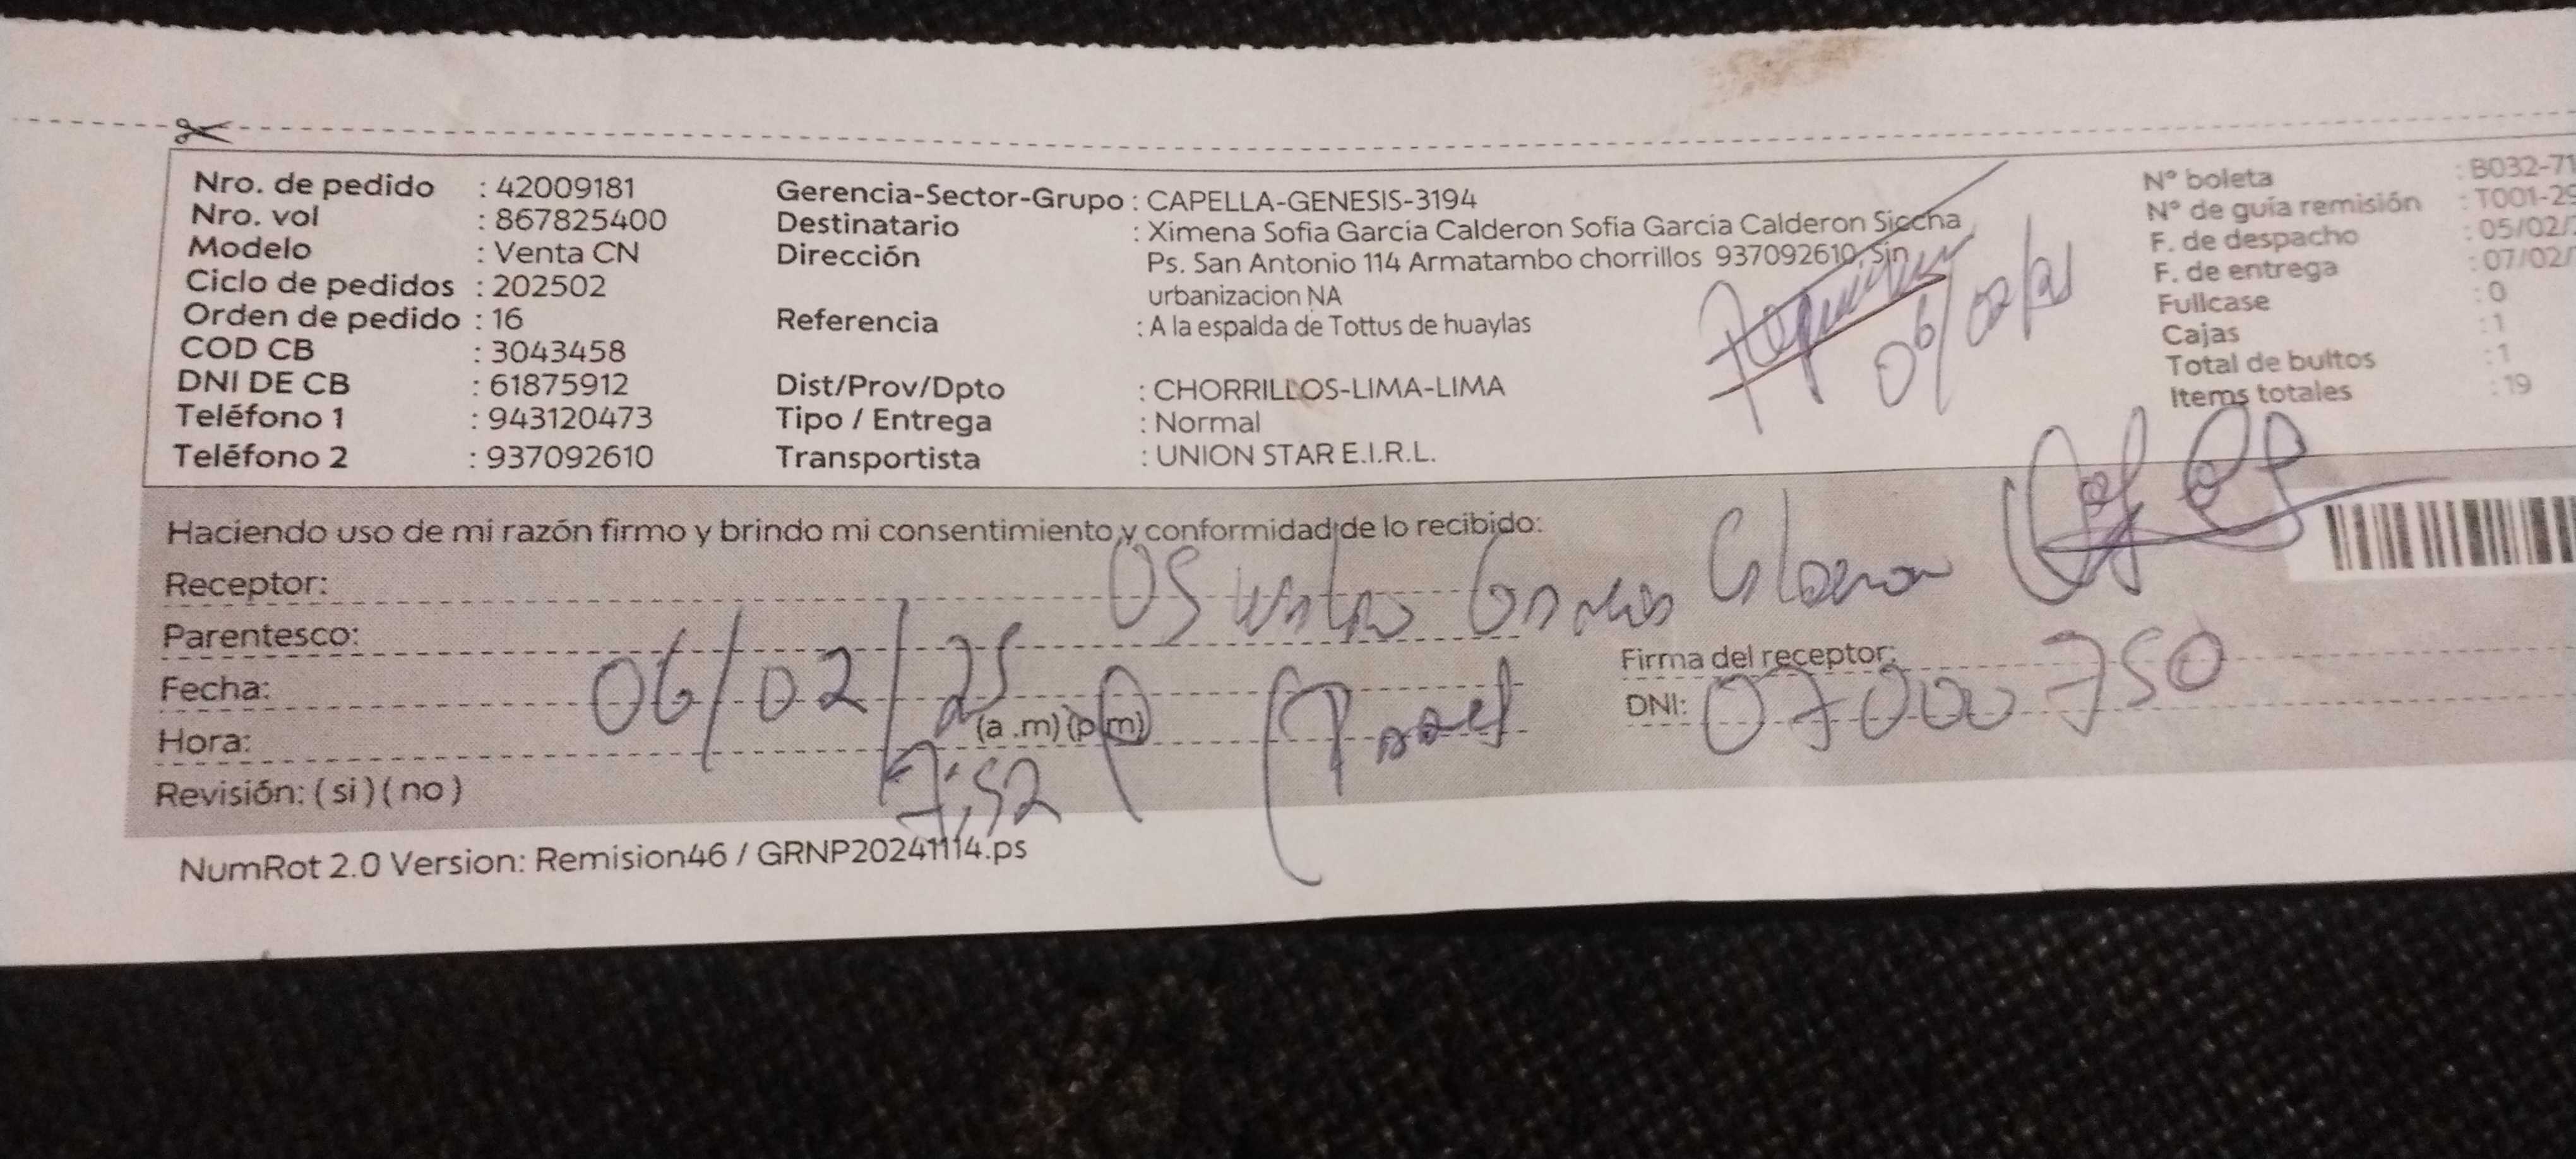 Nro. de pedido : 42009181
Nro. vol : 867825400
Modelo : Venta CN
Ciclo de pedidos : 202502
Orden de pedido : 16
COD CB : 3043458
DNI DE CB : 61875912
Teléfono 1 : 943120473
Teléfono 2 : 937092610
Gerencia-Sector-Grupo : CAPELLA-GENESIS-3194
Destinatario : Ximena Sofia Garcia Calderon Sofia Garcia Calderon Siccha
Dirección Ps. San Antonio 114 Armatambo chorrillos 937092610, Sin
urbanizacion NA
Referencia : A la espalda de Tottus de huaylas
Dist/Prov/Dpto : CHORRILLOS-LIMA-LIMA
Tipo / Entrega : Normal
Transportista : UNION STAR E.I.R.L.
N° boleta : B032-71
N° de guía remisión : T001-29
F. de despacho : 05/02/
F. de entrega : 07/02/
Fullcase : 0
Cajas : 1
Total de bultos : 1
Items totales : 19
Haciendo uso de mi razón firmo y brindo mi consentimiento y conformidad de lo recibido:
Receptor: Calderon
Parentesco:
Fecha: 06/02/25
Hora: (a .m) (p.m) 7:52
Firma del receptor:
DNI: 07000750
Revisión: ( si ) ( no )
NumRot 2.0 Version: Remision46 / GRNP20241114.ps